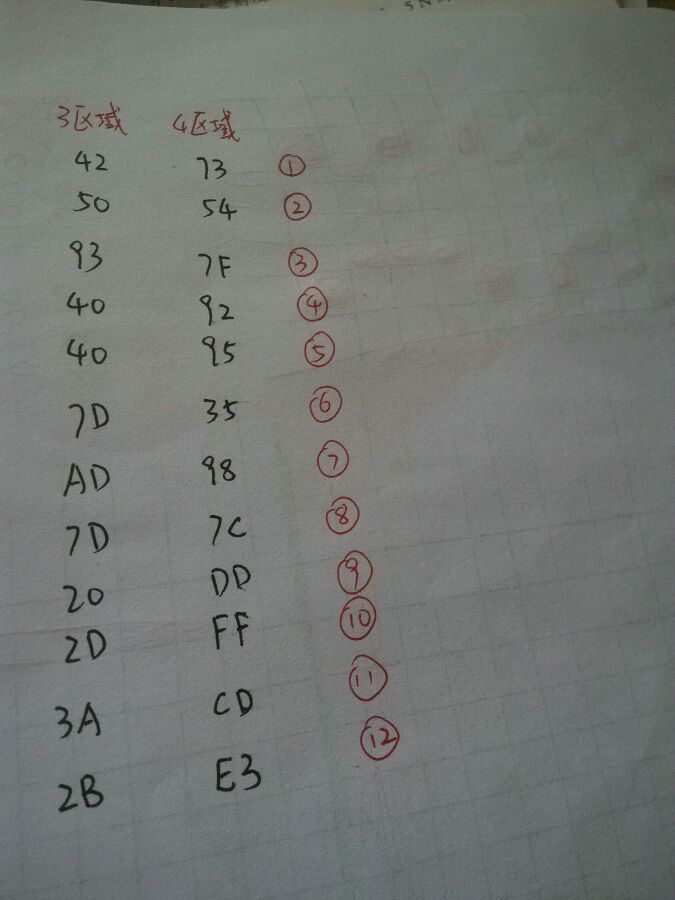 3区域 4区域
42 73 ①
50 54 ②
93 7F ③
40 92 ④
40 95 ⑤
7D 35 ⑥
AD 98 ⑦
7D 7C ⑧
20 DD ⑨
2D FF ⑩
3A CD ⑪
2B E3 ⑫